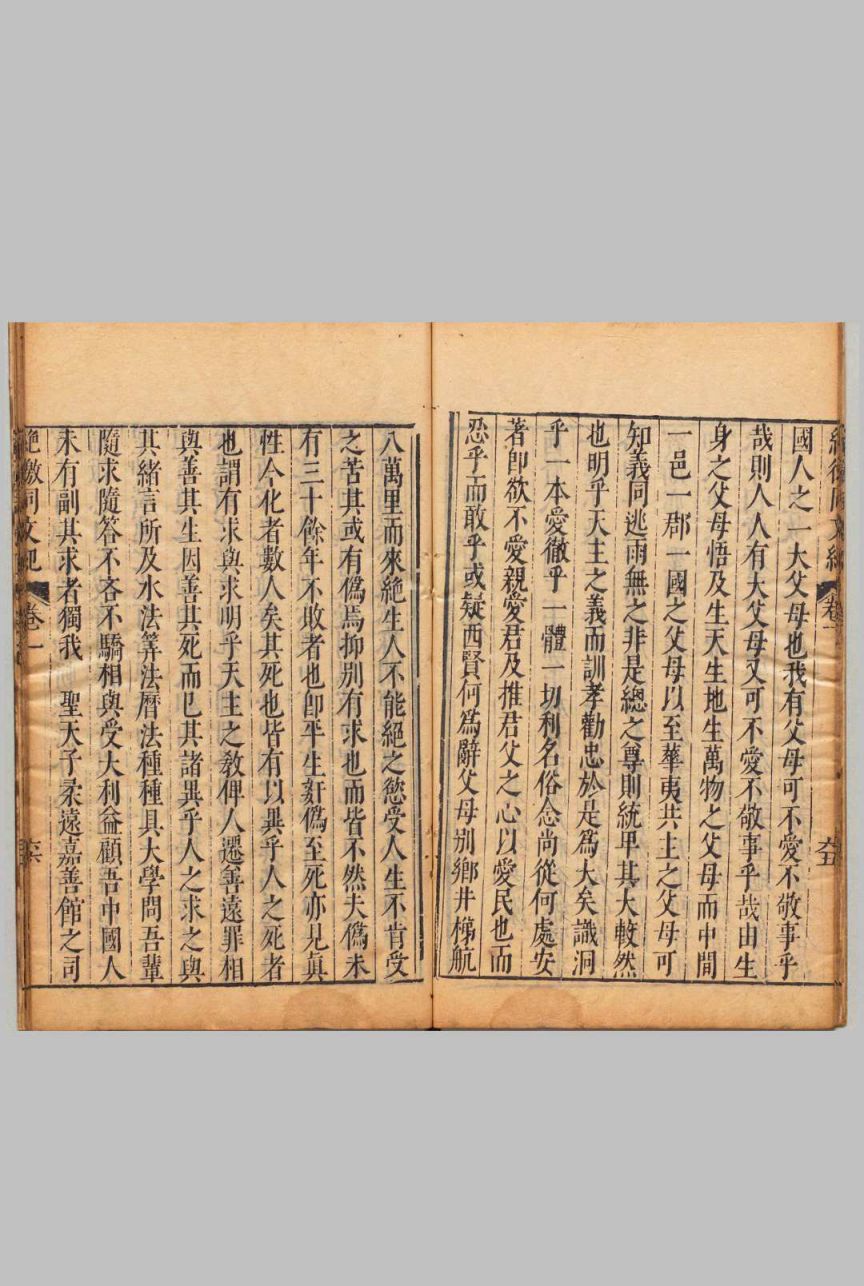 國人之一大父母也我有父母可不愛不敬事乎
哉則人人有大父母又可不愛不敬事乎哉由生
身之父母悟及生天生地生萬物之父母而中間
一邑一郡一國之父母以至華夷共主之父母可
知義同逃雨無之非是總之尊則統卑其大較然
也明乎天主之義而訓孝勸忠於是為大矣識洞
乎一本愛徹乎一體一切利名俗念尚從何處安
著卽欲不愛親愛君及推君父之心以愛民也而
忍乎而敢乎或疑西賢何為辭父母別鄉井梯航
八萬里而來絶生人不能絕之慾受人生不肯受
之苦其或有僞焉抑別有求也而皆不然夫僞未
有三十餘年不敗者也卽平生奸僞至死亦見眞
性今化者數人矣其死也皆有以異乎人之死者
也謂有求與求明乎天主之教俾人遷善遠罪相
與善其生因善其死而已其諸異乎人之求之與
其緒言所及水法筭法曆法種種具大學問吾輩
隨求隨答不吝不驕相與受大利益顧吾中國人
未有副其求者獨我 聖天子柔遠嘉善館之司
絶徼同文紀 卷一 六